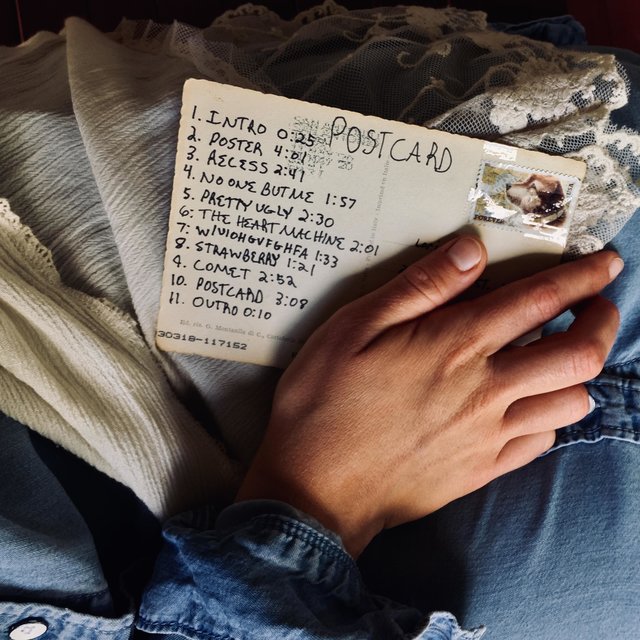 POSTCARD
1. INTRO 0:25
2. POSTER 4:01
3. RECESS 2:41
4. NO ONE BUT ME 1:57
5. PRETTY UGLY 2:30
6. THE HEART MACHINE 2:01
7. WIVIOHGVFGHFA 1:33
8. STRAWBERRY 1:21
9. COMET 2:52
10. POSTCARD 3:08
11. OUTRO 0:10
30318-117152